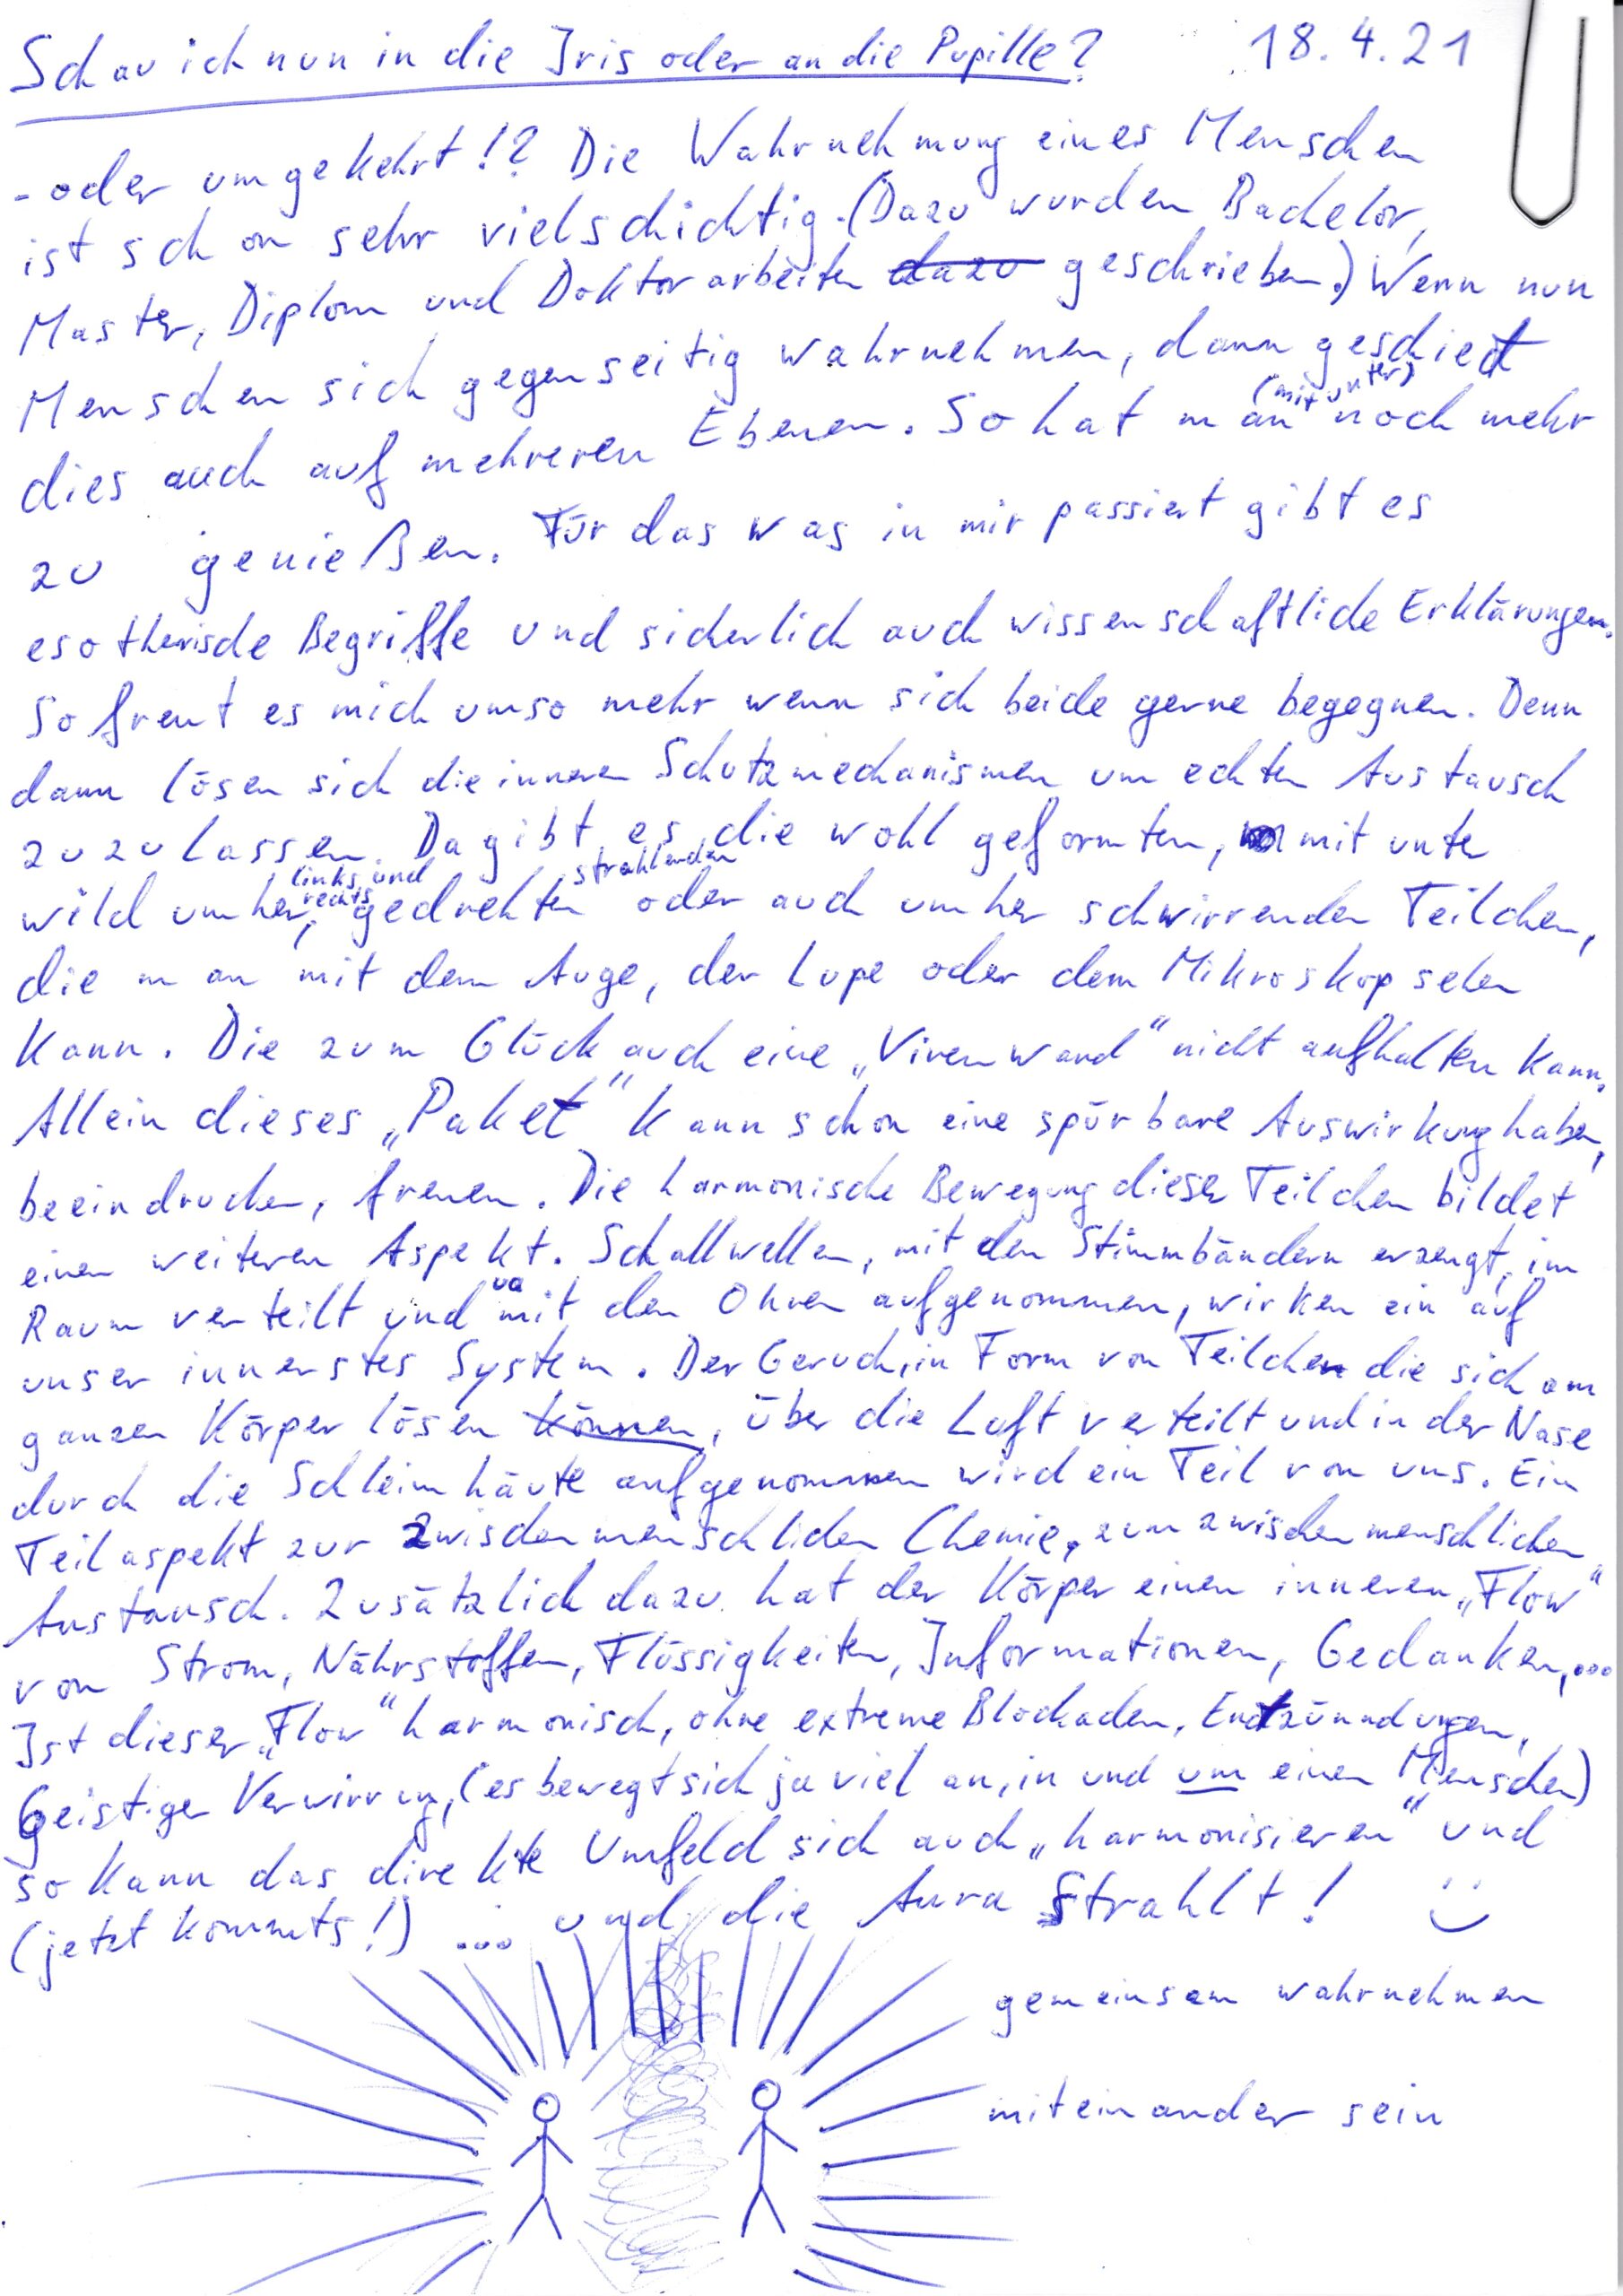 Schau ich nun in die Iris oder an die Pupille? 18.4.21
- oder umgekehrt!? Die Wahrnehmung eines Menschen
ist schon sehr vielschichtig. (Dazu wurden Bachelor,
Master, Diplom und Doktorarbeiten dazu geschrieben.) Wenn nun
Menschen sich gegenseitig wahrnehmen, dann geschiet
dies auch auf mehreren Ebenen. So hat man (mitunter) noch mehr
zu genießen. Für das was in mir passiert gibt es
esotherische Begriffe und sicherlich auch wissenschaftliche Erklärungen.
So freut es mich umso mehr wenn sich beide gerne begegnen. Denn
dann lösen sich die inneren Schutzmechanismen um echten Austausch
zuzulassen. Da gibt es die wohl geformten, mit unter
wild umher, links und rechts gedrehten strahlenden oder auch umher schwirrenden Teilchen,
die man mit dem Auge, der Lupe oder dem Mikroskop sehen
kann. Die zum Glück auch eine „Virenwand" nicht aufhalten kann.
Allein dieses „Paket" kann schon eine spürbare Auswirkung haben,
beeindrucken, freuen. Die harmonische Bewegung dieser Teilchen bildet
einen weiteren Aspekt. Schallwellen, mit den Stimmbändern erzeugt, im
Raum verteilt und ua mit den Ohren aufgenommen, wirken ein auf
unser innerstes System. Der Geruch, in Form von Teilchen die sich am
ganzen Körper lösen können, über die Luft verteilt und in der Nase
durch die Schleimhäute aufgenommen wird ein Teil von uns. Ein
Teilaspekt zur zwischenmenschlichen Chemie, zum zwischenmenschlichen
Austausch. Zusätzlich dazu hat der Körper einen inneren „Flow"
von Strom, Nährstoffen, Flüssigkeiten, Informationen, Gedanken,...
Ist dieser „Flow" harmonisch, ohne extreme Blockaden, Entzünndungen,
Geistiger Verwirrung, (es bewegt sich ja viel an, in und um einen Menschen)
so kann das direkte Umfeld sich auch „harmonisieren" und
(jetzt kommts!) ... und die Aura strahlt! :)
gemeinsam wahrnehmen
miteinander sein